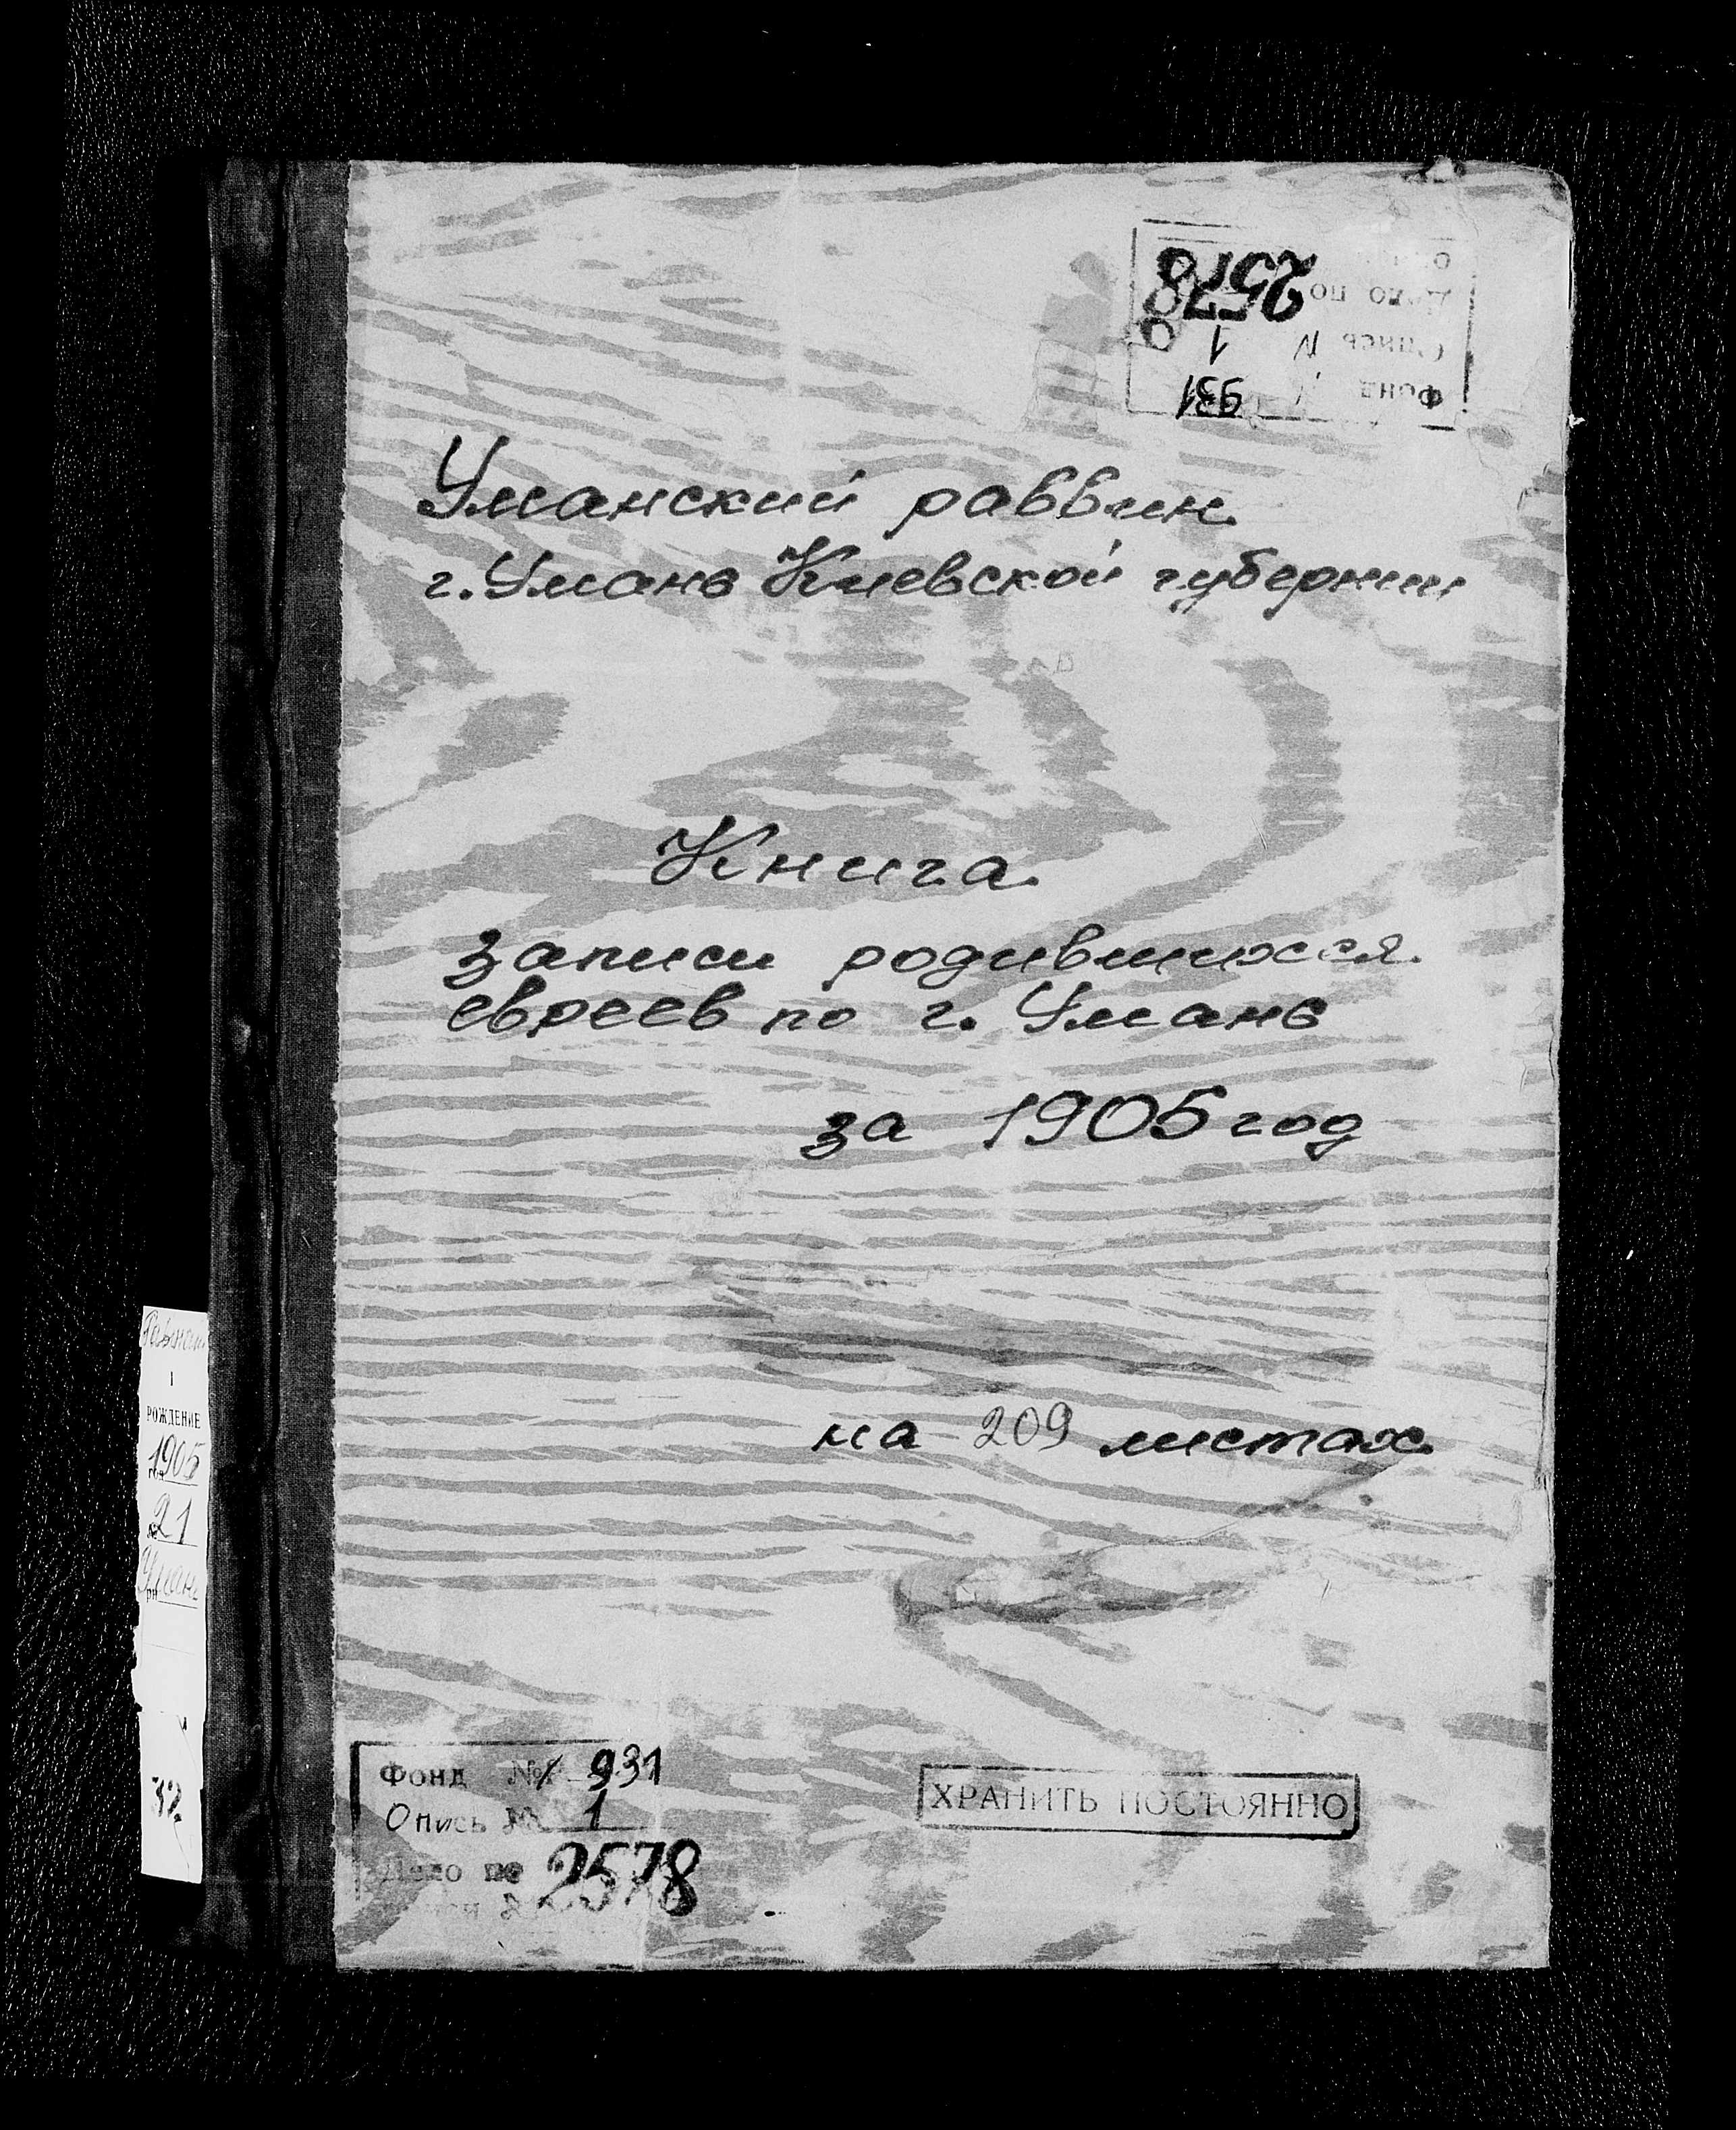 2578
Опись № 1
Фонд 931
Уманский раввин
г. Умань Киевской губернии
Книга
записи родившихся
евреев по г. Умань
за 1905 год
на 209 листах
РОЖДЕНИЕ
1905
год
21
Умань
Фонд № 931
Опись № 1
Дело по 2578
ХРАНИТЬ ПОСТОЯННО